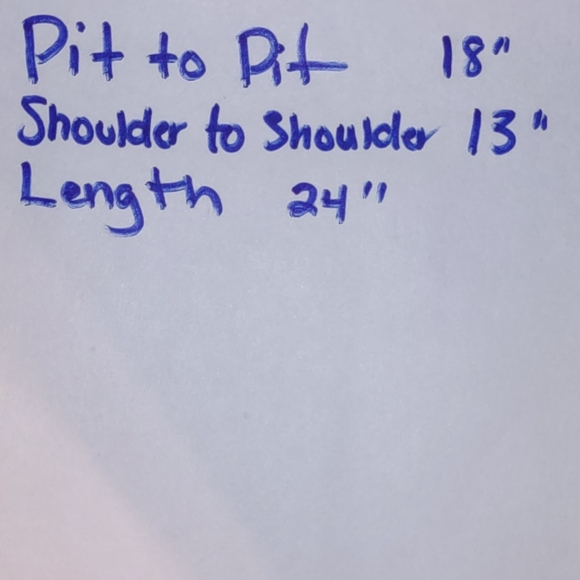 Pit to Pit 18"
Shoulder to Shoulder 13"
Length 24"